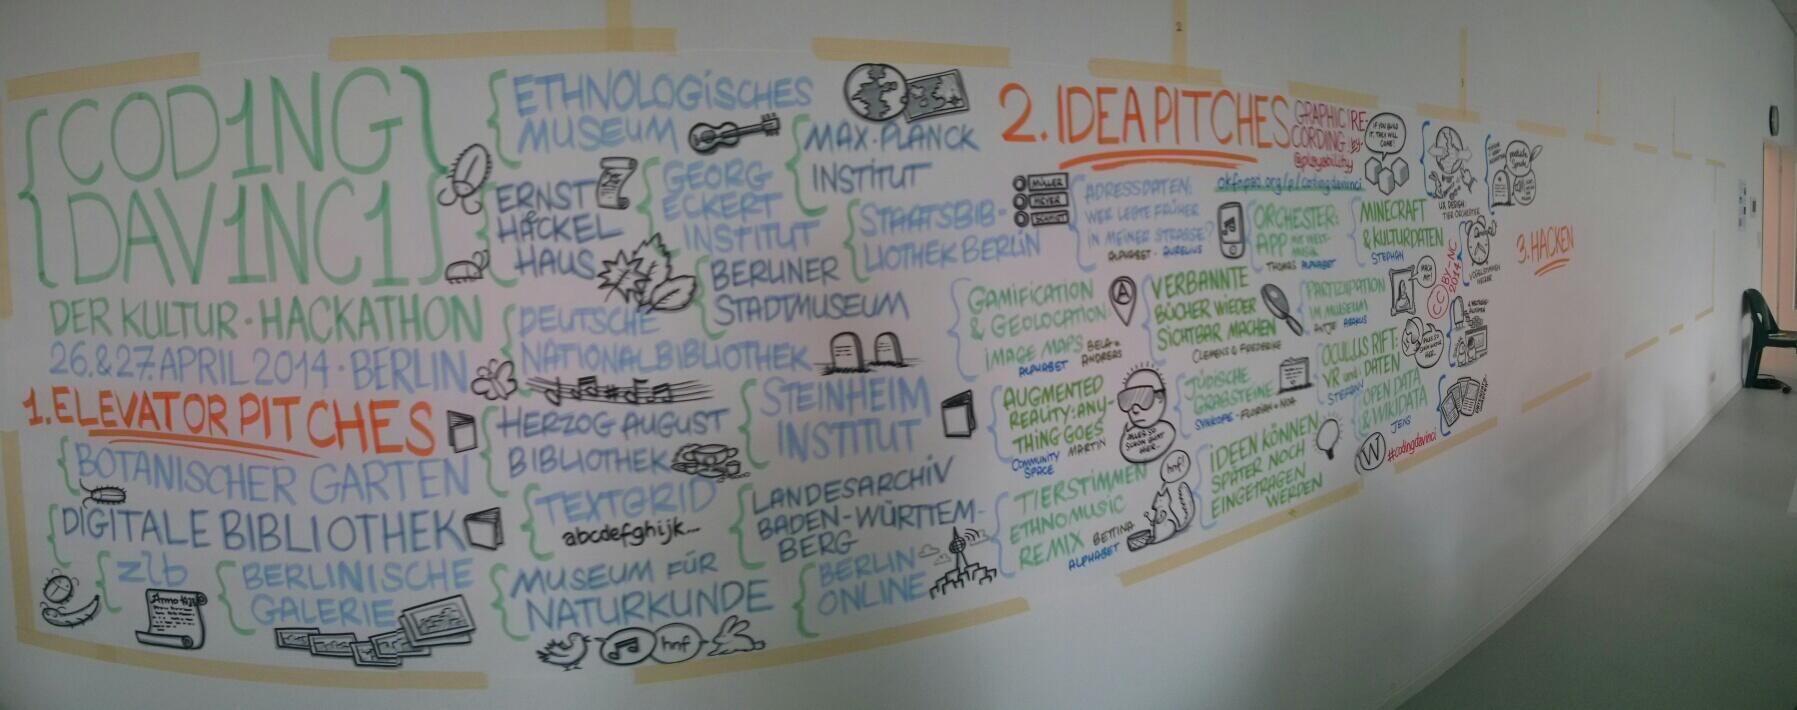 {COD1NG
DAV1NC1}
DER KULTUR·HACKATHON
26.&27. APRIL 2014·BERLIN
1. ELEVATOR PITCHES
BOTANISCHER GARTEN
DIGITALE BIBLIOTHEK
zlb
BERLINISCHE
GALERIE
ETHNOLOGISCHES
MUSEUM
ERNST
HÄCKEL
HAUS
GEORG
ECKERT
INSTITUT
MAX-PLANCK
INSTITUT
STAATSBIB-
LIOTHEK BERLIN
BERLINER
STADTMUSEUM
DEUTSCHE
NATIONALBIBLIOTHEK
HERZOG AUGUST
BIBLIOTHEK
STEINHEIM
INSTITUT
TEXTGRID
abcdefghijk...
LANDESARCHIV
BADEN-WÜRTTEM-
BERG
MUSEUM FÜR
NATURKUNDE
hnf
BERLIN
ONLINE
2. IDEA PITCHES
GRAPHIC RE-
CORDING by
@playability
IF YOU BUILD
IT, THEY WILL
COME!
okfnpad.org/p/codingdavinci
MÜLLER
MEYER
SCHMIDT
ADRESSDATEN:
WER LEBTE FRÜHER
IN MEINER STRASSE?
ALPHABET · AURELIUS
ORCHESTER:
APP MIT WELT-
MUSIK
THOMAS ALPHABET
MINECRAFT
& KULTURDATEN
STEPHAN
UX DESIGN:
TIER ORCHESTER
GAMIFICATION
& GEOLOCATION
IMAGE MAPS BELA &
ALPHABET ANDREAS
A
VERBANNTE
BÜCHER WIEDER
SICHTBAR MACHEN
CLEMENS & FREDERIKE
PARTIZIPATION
IM MUSEUM
ANTJE ABAKUS
MACH
MIT!
CC BY-NC
2014
AUGMENTED
REALITY: ANY-
THING GOES
COMMUNITY MARTIN
SPACE
ALLES SO
SCHÖN BUNT
HIER..
JÜDISCHE
GRABSTEINE
SYNKOPE · FLORIAN & NOA
OCULUS RIFT:
VR und DATEN
STEFAN
OPEN DATA
& WIKIDATA
JENS
W
#codingdavinci
TIERSTIMMEN
ETHNOMUSIC
REMIX BETTINA
ALPHABET
hnf!
IDEEN KÖNNEN
SPÄTER NOCH
EINGETRAGEN
WERDEN
3. HACKEN